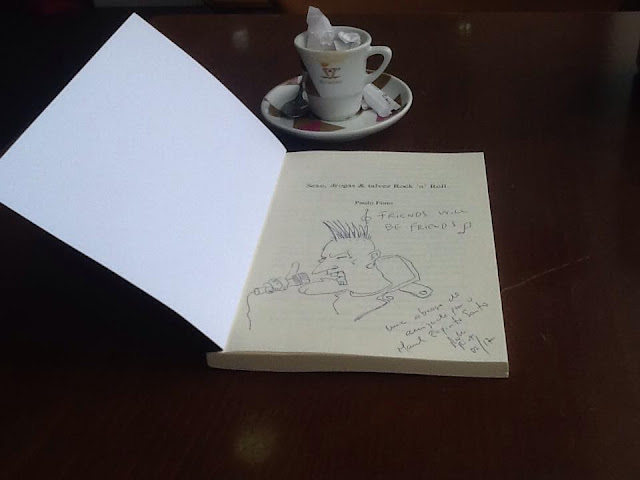 Sexo, drogas & talvez Rock 'n' Roll
Paulo Pinto
FRIENDS WILL
BE FRIENDS
um abraço de
amizade para o
Espírito Santo